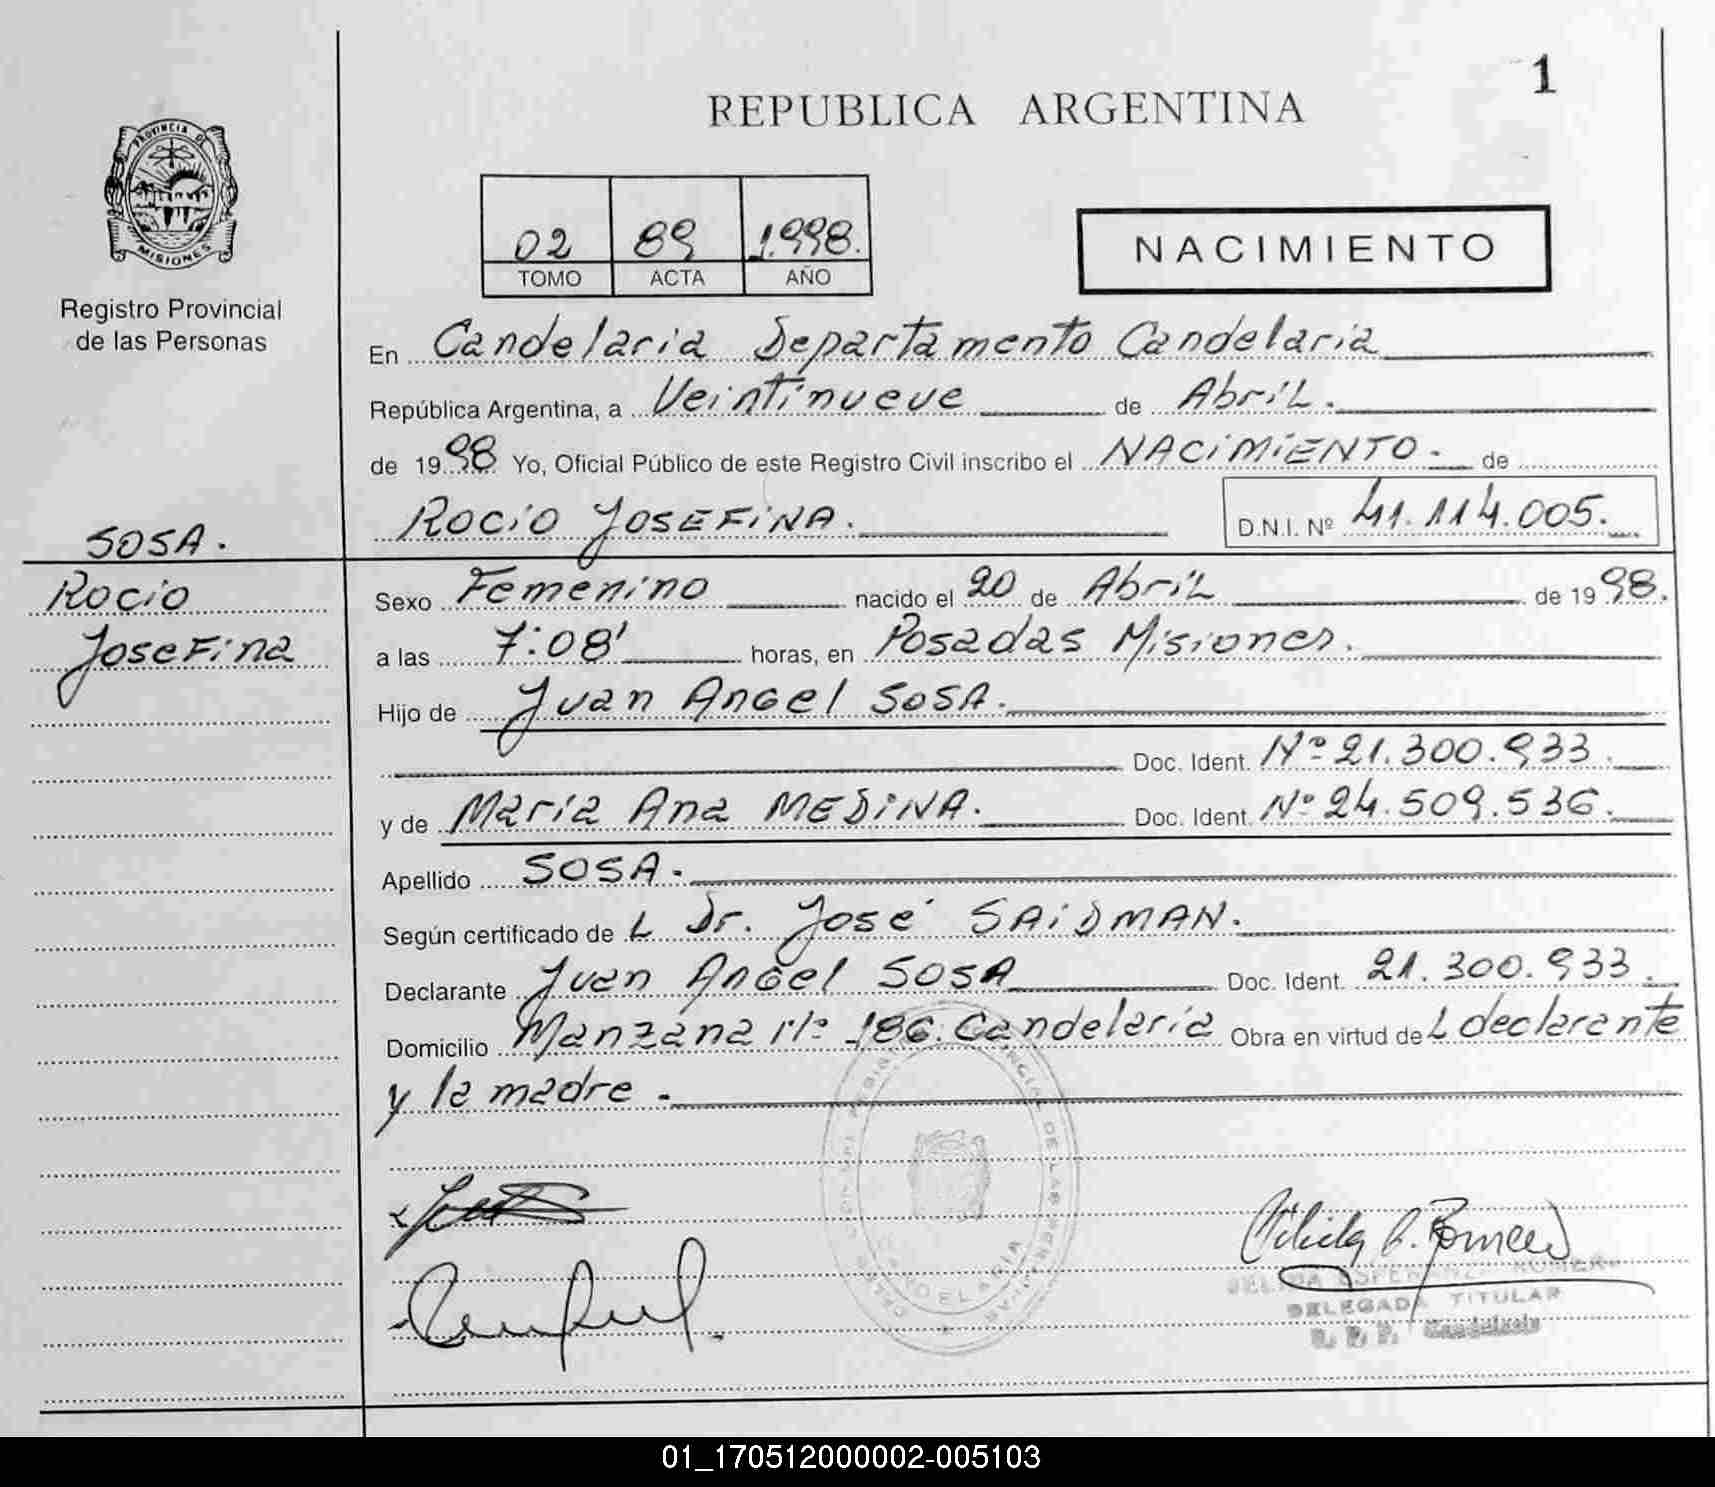 1
REPUBLICA ARGENTINA
PROVINCIA DE
MISIONES
Registro Provincial
de las Personas
02 89 1.998.
TOMO ACTA AÑO
NACIMIENTO
En Candelaria Departamento Candelaria
República Argentina, a Veintinueve de Abril.
de 1998 Yo, Oficial Público de este Registro Civil inscribo el NACiMiENTO. de
ROCiO JOSEFiNA. D.N.I. Nº 41.114.005.
SOSA.
Rocio
JoseFina
Sexo Femenino nacido el 20 de Abril de 1998.
a las 7:08' horas, en Posadas Misiones.
Hijo de Juan Angel SOSA.
Doc. Ident. Nº 21.300.933.
y de Maria Ana MEDiNA. Doc. Ident. Nº 24.509.536.
Apellido SOSA.
Según certificado de L Dr. José SAiDMAN.
Declarante Juan Angel SOSA Doc. Ident. 21.300.933.
Domicilio Manzana Nº 186. Candelaria Obra en virtud de L declarante
y la madre.
DELEGADA TITULAR
01_170512000002-005103